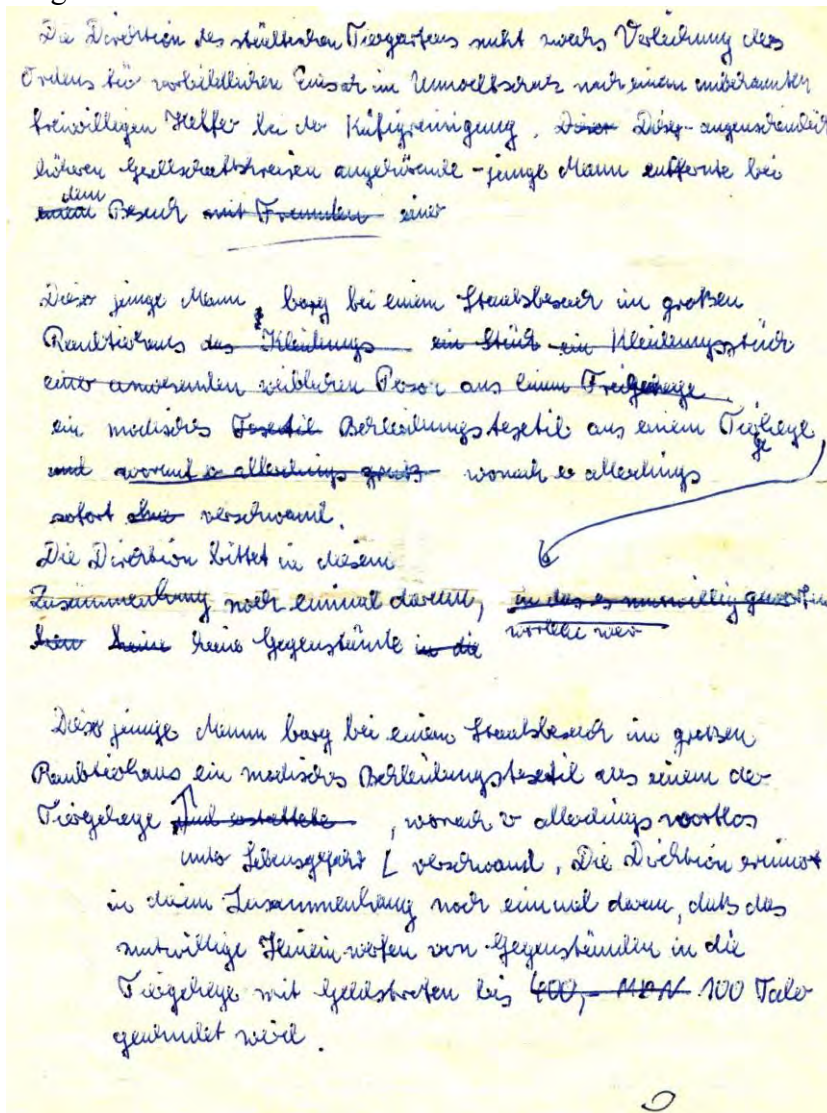 Die Direktion des städtischen Tiergartens sucht zwecks Verleihung des
Ordens für vorbildlichen Einsatz im Umweltschutz nach einem unbekannten
freiwilligen Helfer bei der Käfigreinigung. Dieser Dieser - augenscheinlich
höheren Gesellschaftskreisen angehörende - junge Mann entfernte bei
dem
einem Besuch mit Freunden einer
Dieser junge Mann barg bei einem Staatsbesuch im großen
Raubtierhaus das Kleidungs ein Stück ein Kleidungsstück
einer anwesenden weiblichen Person aus einem Freigehege
ein modisches Textil Bekleidungstextil aus einem Tiergehege,
und worauf er allerdings wonach er allerdings
sofort ohne verschwand.
Die Direktion bittet in diesem
Zusammenhang noch einmal darum, in das es mutwillig geworfen
worden war
keine keine Gegenstände in die
Dieser junge Mann barg bei einem Staatsbesuch im großen
Raubtierhaus ein modisches Bekleidungstextil aus einem der
Tiergehege und erstattete, wonach er allerdings wortlos
unter Lebensgefahr verschwand. Die Direktion erinnert
in diesem Zusammenhang noch einmal daran, daß das
mutwillige Hineinwerfen von Gegenständen in die
Tiergehege mit Geldstrafen bis 400,- MDN 100 Taler
geahndet wird.